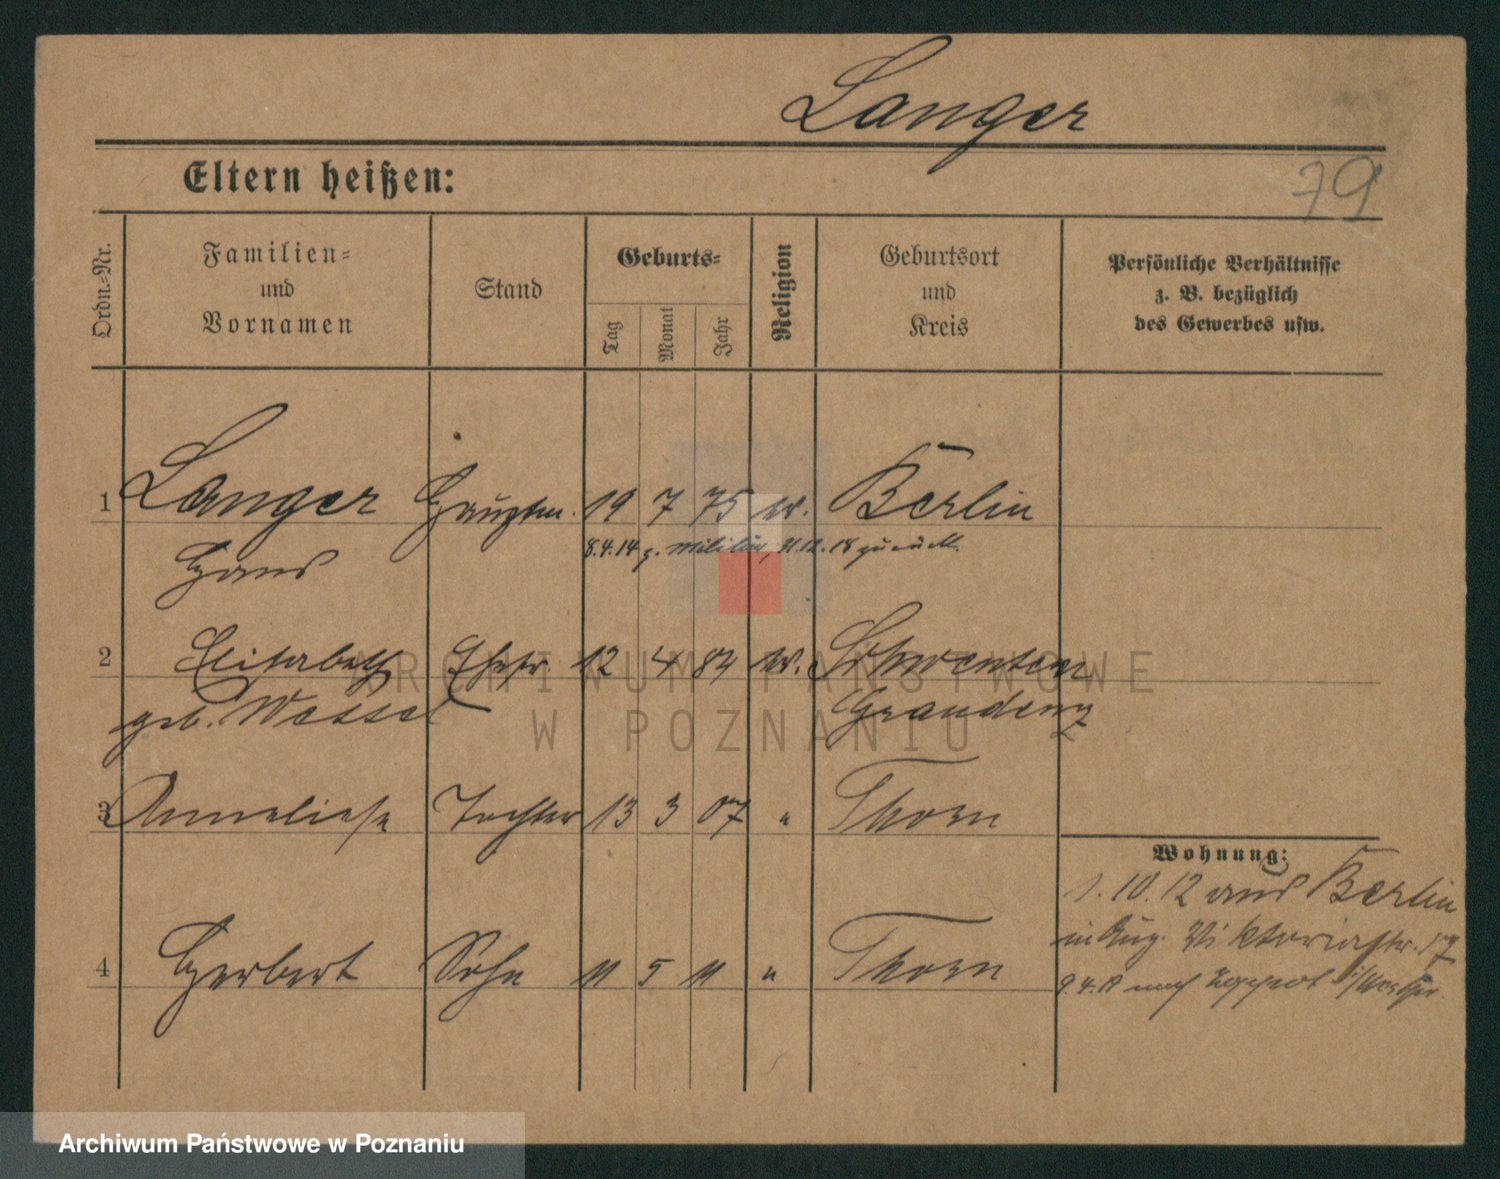 Langer
Eltern heißen:
79
Ordn.-Nr.
Familien-
und
Vornamen
Stand
Geburts-
Tag
Monat
Jahr
Religion
Geburtsort
und
Kreis
Persönliche Verhältnisse
z. B. bezüglich
des Gewerbes usw.
1 Langer Hauptm. 19 7 75 ev. Berlin
Hans
8.4.14 z. Militär, 31.12.18 zurück.
2 Elisabeth Ehefr. 12 4 84 ev. Schwenten
geb. Wessel Graudenz
3 Anneliese Tochter 13 3 07 " Thorn
4 Herbert Sohn 11 5 11 " Thorn
Wohnung:
1.10.12 aus Berlin
in Aug. Viktoriastr. 17
nach Zoppot
ARCHIWUM PAŃSTWOWE
W POZNANIU
Archiwum Państwowe w Poznaniu